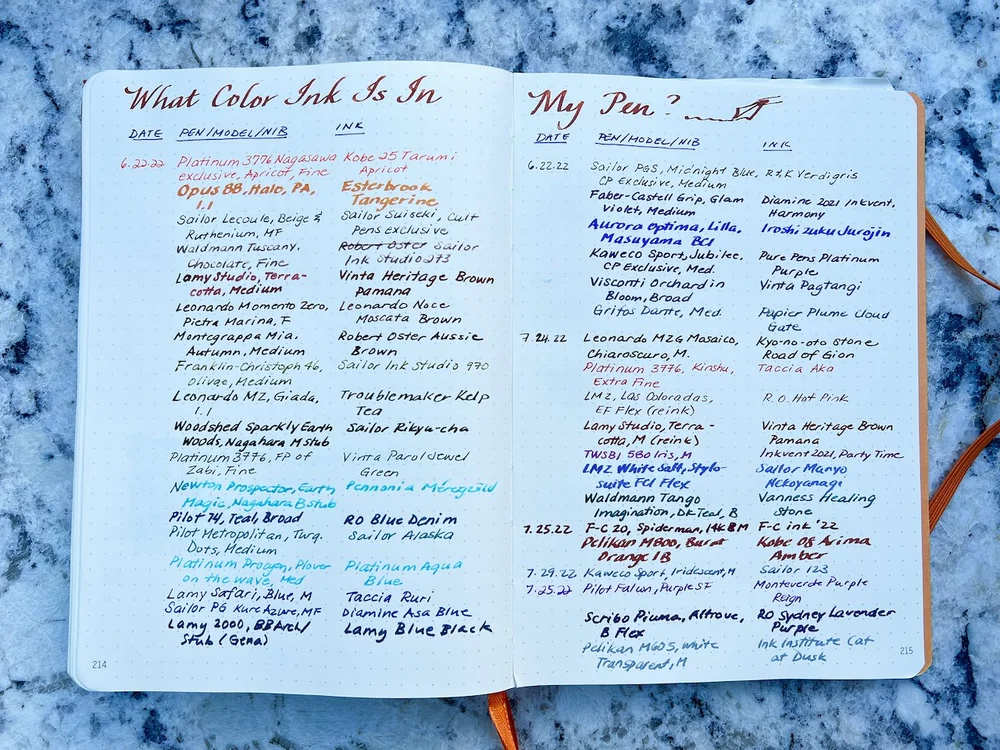 What Color Ink Is In
DATE PEN/MODEL/NIB INK
6.22.22 Platinum 3776 Nagasawa Kobe 25 Tarumi
exclusive, Apricot, Fine Apricot
Opus 88, Halo, PA, Esterbrook
1.1 Tangerine
Sailor Lecoule, Beige & Sailor Suiseki, Cult
Ruthenium, MF Pens exclusive
Waldmann Tuscany, Robert Oster Sailor
Chocolate, Fine Ink Studio 273
Lamy Studio, Terra- Vinta Heritage Brown
cotta, Medium Pamana
Leonardo Momento Zero, Leonardo Noce
Pietra Marina, F Moscata Brown
Montegrappa Mia, Robert Oster Aussie
Autumn, Medium Brown
Franklin-Christoph 46, Sailor Ink Studio 970
Olivae, Medium
Leonardo MZ, Giada, Troublemaker Kelp
1.1 Tea
Woodshed Sparkly Earth Sailor Rikyu-cha
Woods, Nagahara M stub
Platinum 3776, FP of Vinta Parol Jewel
Zabi, Fine Green
Newton Prospector, Earth Pennonia Méregzöld
Magic, Nagahara B stub
Pilot 74, Teal, Broad RO Blue Denim
Pilot Metropolitan, Turq. Sailor Alaska
Dots, Medium
Platinum Procyon, Plover Platinum Aqua
on the wave, Med Blue
Lamy Safari, Blue, M Taccia Ruri
Sailor PG Kure Azure, MF Diamine Asa Blue
Lamy 2000, BB Arch/ Lamy Blue Black
Stub (Gena)
214
My Pen?
DATE PEN/MODEL/NIB INK
6.22.22 Sailor PGS, Midnight Blue, R & K Verdigris
CP Exclusive, Medium
Faber-Castell Grip, Glam Diamine 2021 Inkvent,
Violet, Medium Harmony
Aurora Optima, Lilla, Iroshizuku Jurojin
Masuyama BCI
Kaweco Sport, Jubilee, Pure Pens Platinum
CP Exclusive, Med. Purple
Visconti Orchard in Vinta Pagtangi
Bloom, Broad
Gritos Dante, Med. Papier Plume Cloud
Gate
7.24.22 Leonardo MZG Mosaico, Kyo-no-oto Stone
Chiaroscuro, M. Road of Gion
Platinum 3776, Kinshu, Taccia Aka
Extra Fine
LMZ, Las Coloradas, R.O. Hot Pink
EF Flex (reink)
Lamy Studio, Terra- Vinta Heritage Brown
cotta, M (reink) Pamana
TWSBI 580 Iris, M Inkvent 2021, Party Time
LMZ White Salt, Stylo- Sailor Manyo
suite FCI Flex Nekoyanagi
Waldmann Tango Vanness Healing
Imagination, Dk Teal, B Stone
7.25.22 F-C 20, Spiderman, 14k BM F-C ink '22
Pelikan M600, Burnt Kobe 08 Arima
Orange IB Amber
7.29.22 Kaweco Sport, Iridescent, M Sailor 123
7.25.22 Pilot Falcon, Purple SF Monteverde Purple
Reign
Scribo Piuma, Altrove, RO Sydney Lavender
B Flex Purple
Pelikan M605, White Ink Institute Cat
Transparent, M at Dusk
215